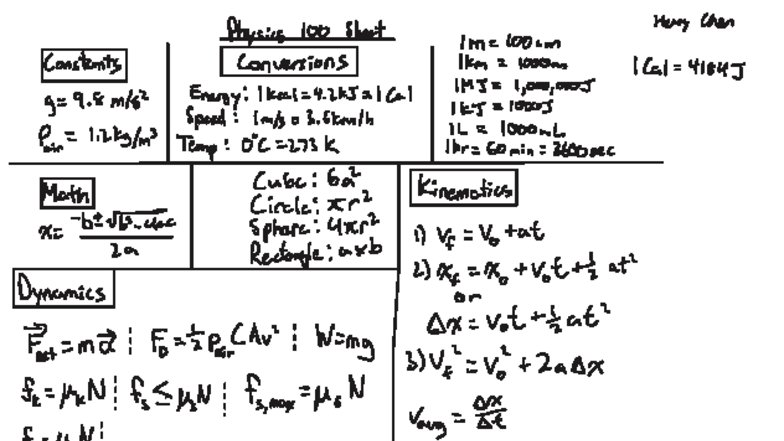 Physics 100 Sheet
Henry Chen
Constants
g = 9.8 m/s²
ρair = 1.2 kg/m³
Conversions
Energy: 1 kcal = 4.2 kJ = 1 Cal
Speed: 1 m/s = 3.6 km/h
Temp: 0°C = 273 K
1 m = 100 cm
1 km = 1000 m
1 MJ = 1,000,000 J
1 kJ = 1000 J
1 L = 1000 mL
1 hr = 60 min = 3600 sec
1 Cal = 4184 J
Math
x = (-b ± √(b² - 4ac)) / 2a
Cube: 6a²
Circle: πr²
Sphere: 4πr²
Rectangle: a × b
Kinematics
1) Vf = V₀ + at
2) xf = x₀ + V₀t + ½ at²
or
Δx = V₀t + ½ at²
3) Vf² = V₀² + 2aΔx
Vavg = Δx / Δt
Dynamics
F⃗net = ma⃗ | FD = ½ ρair CAv² | W = mg
fk = μkN | fs ≤ μsN | fs,max = μsN